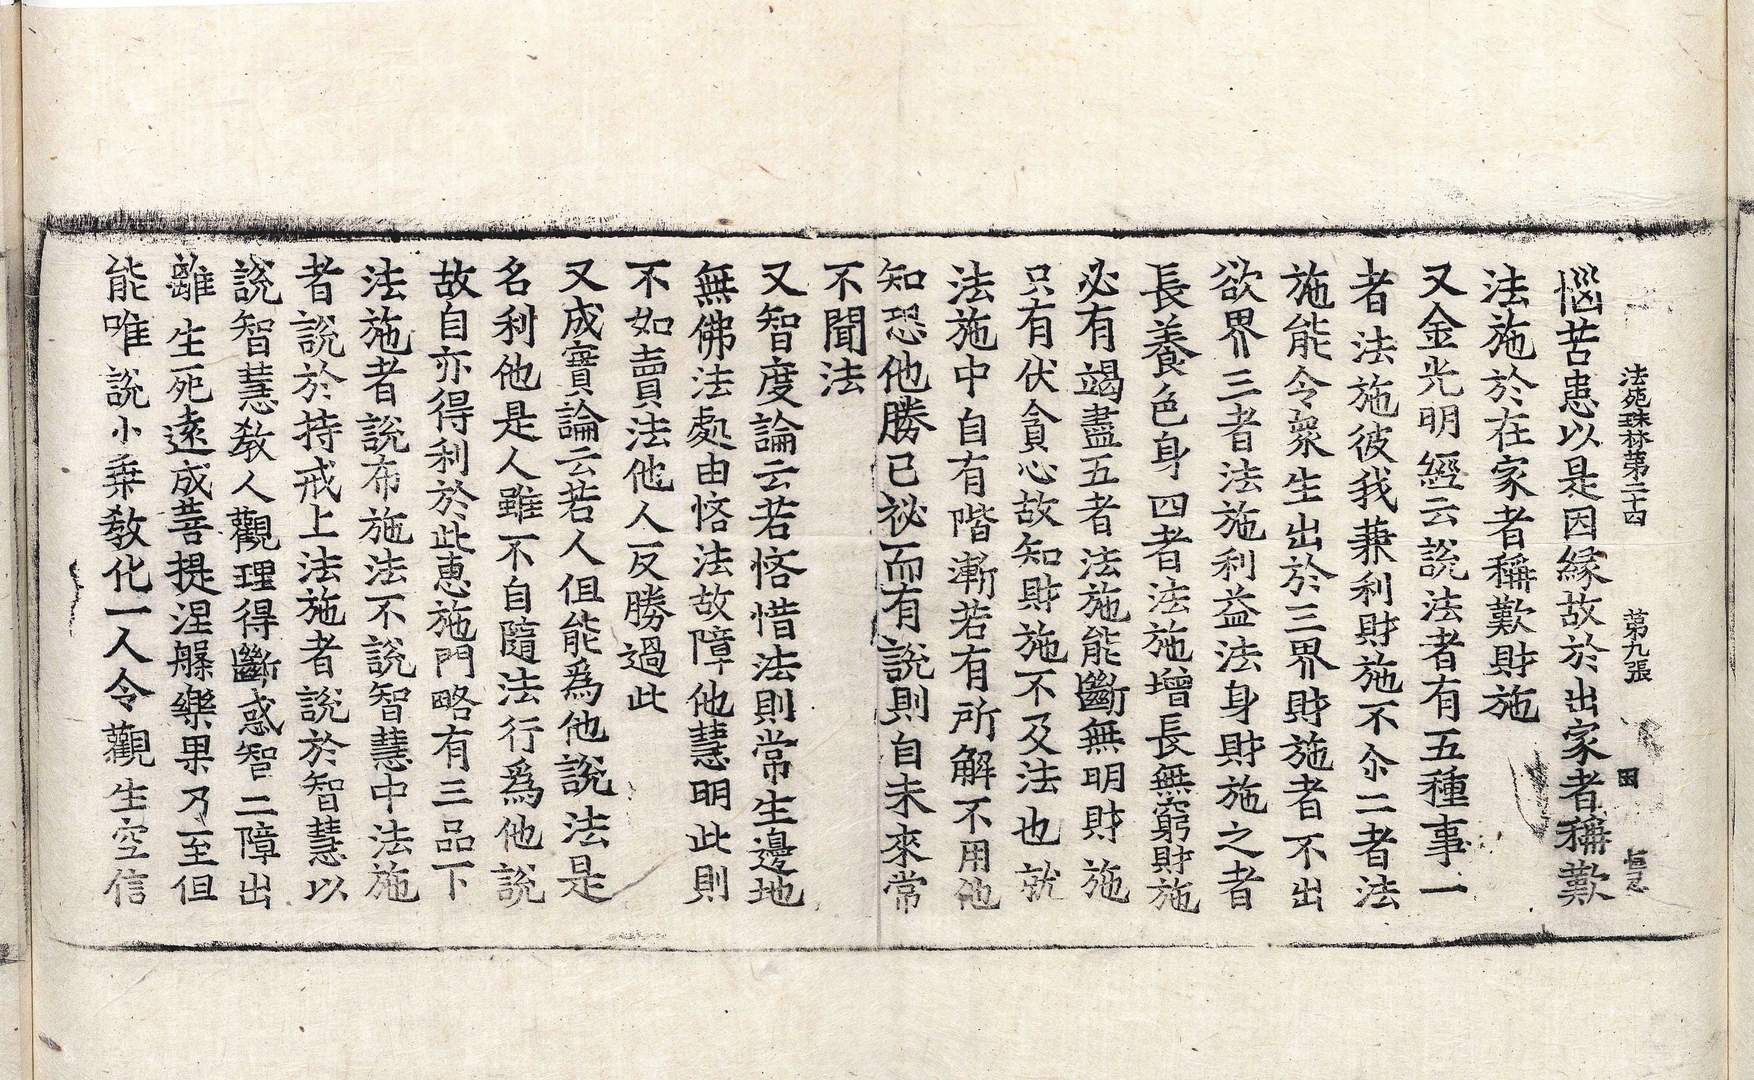 法苑珠林第二十四 第九張 因
惱苦患以是因緣故於出家者稱歎
法施於在家者稱歎財施
又金光明經云說法者有五種事一
者法施彼我兼利財施不尒二者法
施能令衆生出於三界財施者不出
欲界三者法施利益法身財施之者
長養色身四者法施增長無窮財施
必有竭盡五者法施能斷無明財施
只有伏貪心故知財施不及法也就
法施中自有階漸若有所解不用他
知恐他勝已祕而有說則自未來常
不聞法
又智度論云若悋惜法則常生邊地
無佛法處由悋法故障他慧明此則
不如賣法他人反勝過此
又成寶論云若人但能爲他說法是
名利他是人雖不自隨法行爲他說
故自亦得利於此惠施門略有三品下
法施者說布施法不說智慧中法施
者說於持戒上法施者說於智慧以
說智慧教人觀理得斷惑智二障出
離生死遠成菩提涅槃樂果乃至但
能唯說小乗教化一人令觀生空信